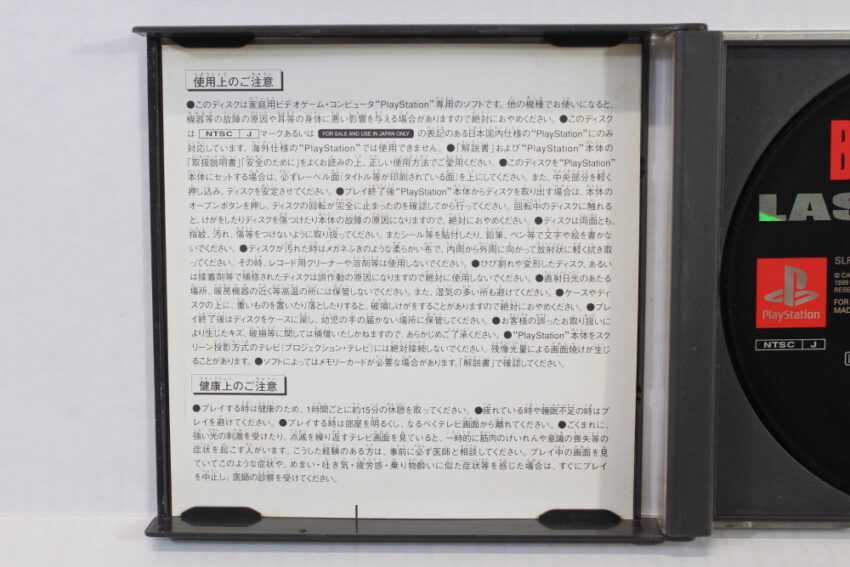 使用上のご注意
●このディスクは家庭用ビデオゲーム・コンピュータ“PlayStation”専用のソフトです。他の機種でお使いになると、
機器等の故障の原因や耳等の身体に悪い影響を与える場合がありますので絶対におやめください。●このディスク
は NTSC J マークあるいは FOR SALE AND USE IN JAPAN ONLY の表記のある日本国内仕様の“PlayStation”にのみ
対応しています。海外仕様の“PlayStation”では使用できません。●「解説書」および“PlayStation”本体の
「取扱説明書」「安全のために」をよくお読みの上、正しい使用方法でご愛用ください。●このディスクを“PlayStation”
本体にセットする場合は、必ずレーベル面(タイトル等が印刷されている面)を上にしてください。また、中央部分を軽く
押し込み、ディスクを安定させてください。●プレイ終了後“PlayStation”本体からディスクを取り出す場合は、本体の
オープンボタンを押し、ディスクの回転が完全に止まったのを確認してから行ってください。回転中のディスクに触れる
と、けがをしたりディスクを傷つけたり本体の故障の原因になりますので、絶対におやめください。●ディスクは両面とも、
指紋、汚れ、傷等をつけないように取り扱ってください。またシール等を貼付したり、鉛筆、ペン等で文字や絵を書かな
いでください。●ディスクが汚れた時はメガネふきのような柔らかい布で、内周から外周に向かって放射状に軽く拭き取
ってください。その時、レコード用クリーナーや溶剤等は使用しないでください。●ひび割れや変形したディスク、あるい
は接着剤等で補修されたディスクは誤作動の原因になりますので絶対に使用しないでください。●直射日光のあたる
場所、暖房機器の近く等高温の所には保管しないでください、また、湿気の多い所も避けてください。●ケースやディ
スクの上に、重いものを置いたり落としたりすると、破損しけがをすることがありますので絶対におやめください。●プレ
イ終了後はディスクをケースに戻し、幼児の手の届かない場所に保管してください。●お客様の誤ったお取り扱いに
より生じたキズ、破損等に関しては補償いたしかねますので、あらかじめご了承ください。●“PlayStation”本体をス
クリーン投影方式のテレビ(プロジェクション・テレビ)には絶対接続しないでください。残像光量による画面焼けが生じ
ることがあります。●ソフトによってはメモリーカードが必要な場合があります。「解説書」で確認してください。
健康上のご注意
●プレイする時は健康のため、1時間ごとに約15分の休憩を取ってください。●疲れている時や睡眠不足の時はプ
レイを避けてください。●プレイする時は部屋を明るくし、なるべくテレビ画面から離れてください。●ごくまれに、
強い光の刺激を受けたり、点滅を繰り返すテレビ画面を見ていると、一時的に筋肉のけいれんや意識の喪失等の
症状を起こす人がいます。こうした経験のある方は、事前に必ず医師と相談してください。プレイ中の画面を見
ていてこのような症状や、めまい・吐き気・疲労感・乗り物酔いに似た症状等を感じた場合は、すぐにプレイ
を中止し、医師の診察を受けてください。
B
LAS
SLP
© CA
1999
RESE
FOR
MADE
PlayStation
NTSC J